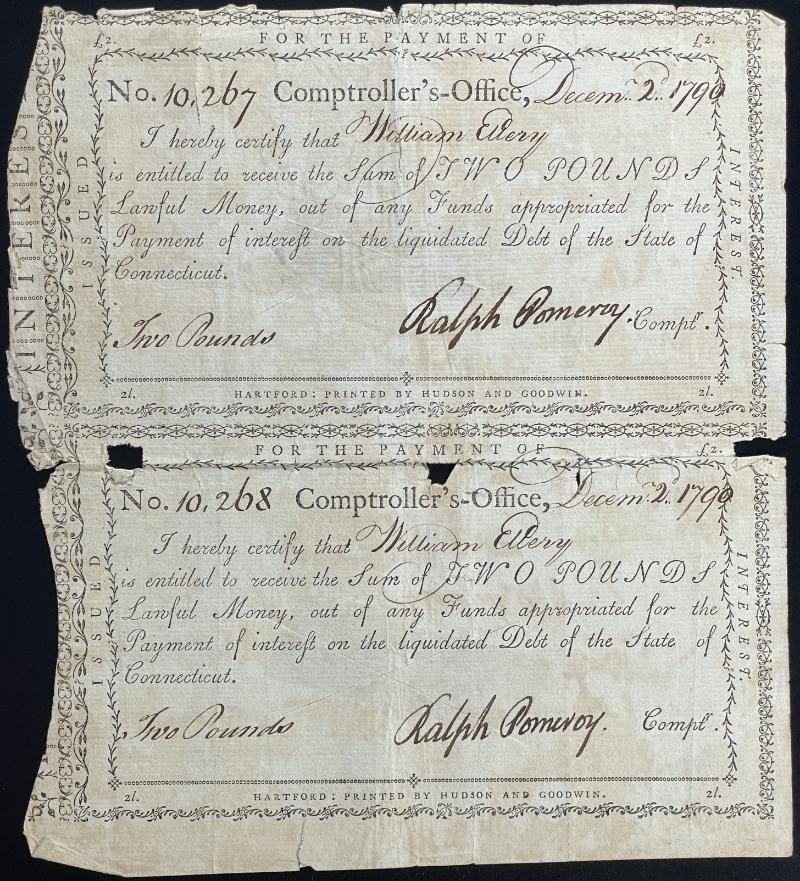 £2. FOR THE PAYMENT OF £2.
No. 10,267 Comptroller's-Office, Decemr. 2d. 1790
I hereby certify that William Ellery
is entitled to receive the Sum of TWO POUNDS
Lawful Money, out of any Funds appropriated for the
Payment of intereſt on the liquidated Debt of the State of
Connecticut.
Two Pounds Ralph Pomeroy. Comptr.
2l. HARTFORD: PRINTED BY HUDSON AND GOODWIN. 2l.
INTERES
ISSUED
INTEREST.
FOR THE PAYMENT OF £2.
No. 10,268 Comptroller's-Office, Decemr. 2d. 1790
I hereby certify that William Ellery
is entitled to receive the Sum of TWO POUNDS
Lawful Money, out of any Funds appropriated for the
Payment of intereſt on the liquidated Debt of the State of
Connecticut.
Two Pounds Ralph Pomeroy. Comptr.
2l. HARTFORD: PRINTED BY HUDSON AND GOODWIN. 2l.
ISSUED
INTEREST